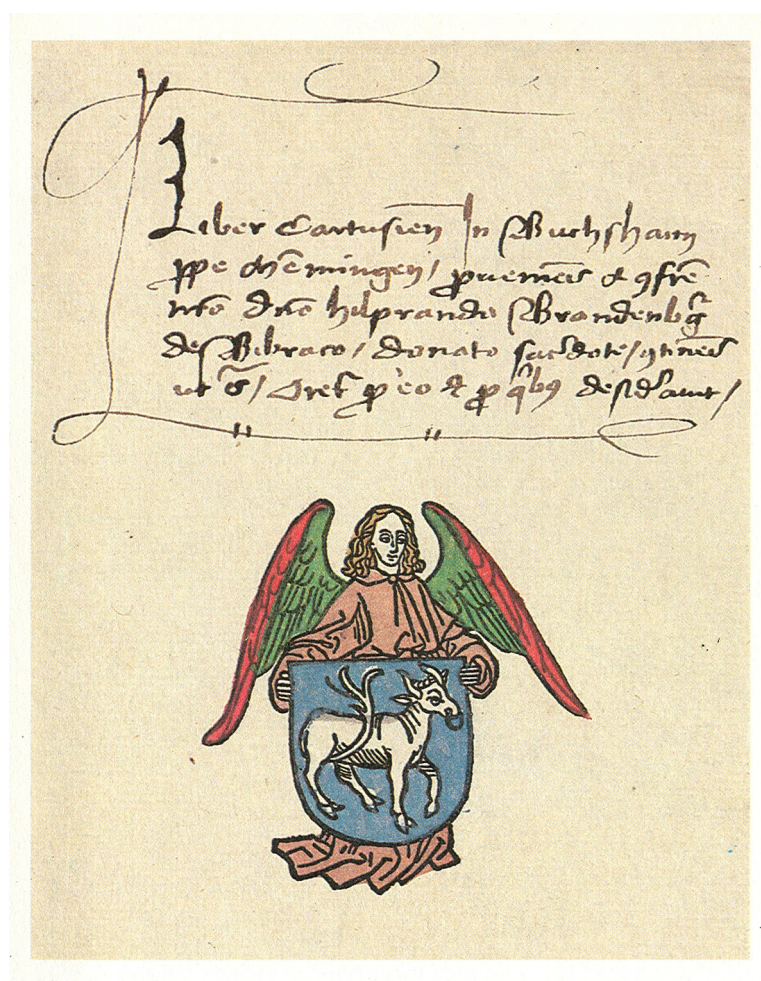 Liber Cartusien̄ In Buchshaim
ꝓpe Mem̄ingen / ꝓueniēs a ꝯfrē
nr̄o dn̄o hilprando Brandenbᵍ
de Bibraco / donato sac̕dote / ꝯtinēs
ut Oret̕ ꝓ eo ⁊ ꝓ qⁱbꝰ desid̕auit /